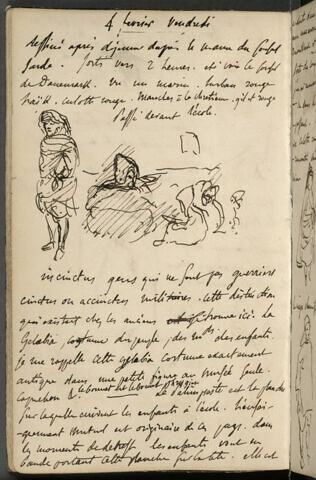 4 février Vendredi
dessiné après déjeuner d'après le maure du consul
Sarde. Sorti vers 2 heures. été voir le consul
de Danemark. vu un marin. turban rouge
culotte rouge. manches à la chrétienne gilet rouge
Passé devant l'école.
incinctus gens qui ne sont pas guerriers
cinctus ou accinctus militaires. cette distinction
qui existait chez les anciens se trouve ici. la
Gelabia costume du peuple, des mds des enfants.
je me rappelle cette gelabia costume exactement
antique dans une petite figure au musée
capuchon le bonnet de le bonnet phrygien
est la planche
sur laquelle écrivent les enfants à l'école. l'ensei-
gnement mutuel est originaire de ces pays. dans
les moments de détresse les enfants vont en
bande portant cette planche sur la tête. elle est